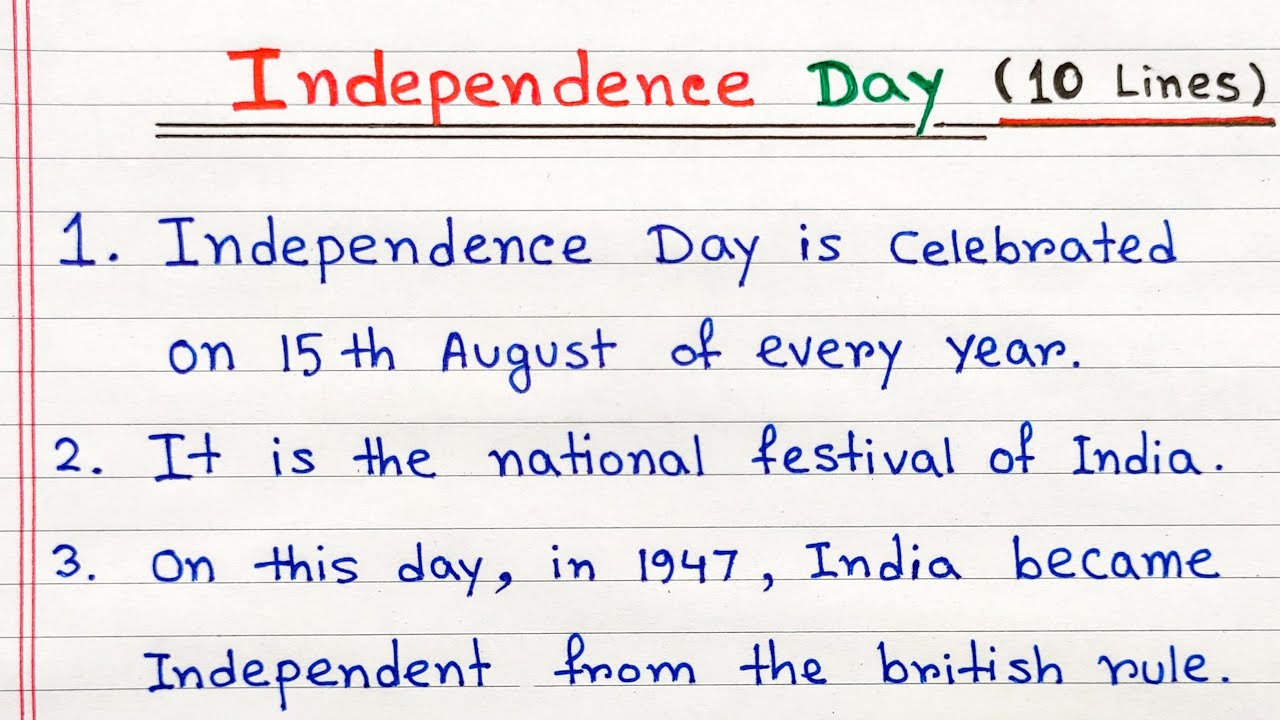 Independence Day (10 Lines)
1. Independence Day is celebrated
on 15th August of every year.
2. It is the national festival of India.
3. On this day, in 1947, India became
Independent from the british rule.